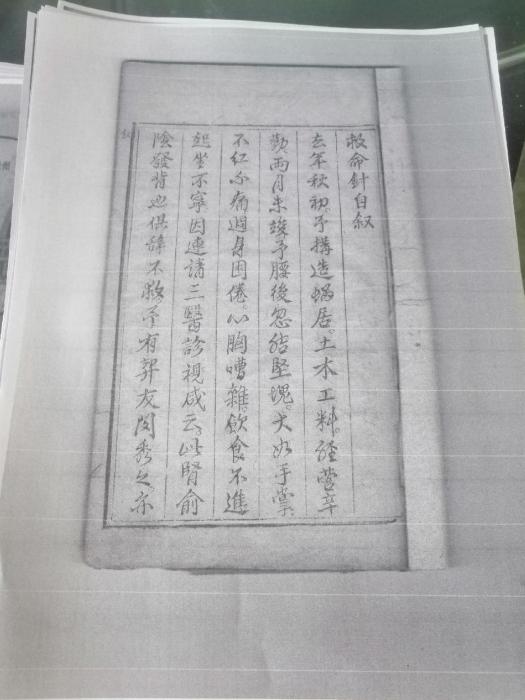 救命針自叙
去年秋初。予構造蝸居。土木工料。經營辛
勤兩月未竣予腰後忽結堅塊。大如手掌
不紅不痛週身困倦。心胸嘈雜。飲食不進
起坐不寧因連請三醫診視咸云。此腎俞
陰發背也俱辭不救。予有契友閔秀之亦